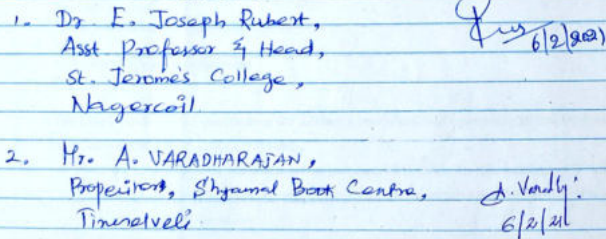 1. Dr. E. Joseph Rubert,
Asst. Professor & Head,
St. Jerome's College,
Nagercoil
6/2/2021
2. Mr. A. VARADHARAJAN,
Shyamal Book Centre,
Tirunelveli.
6/2/21